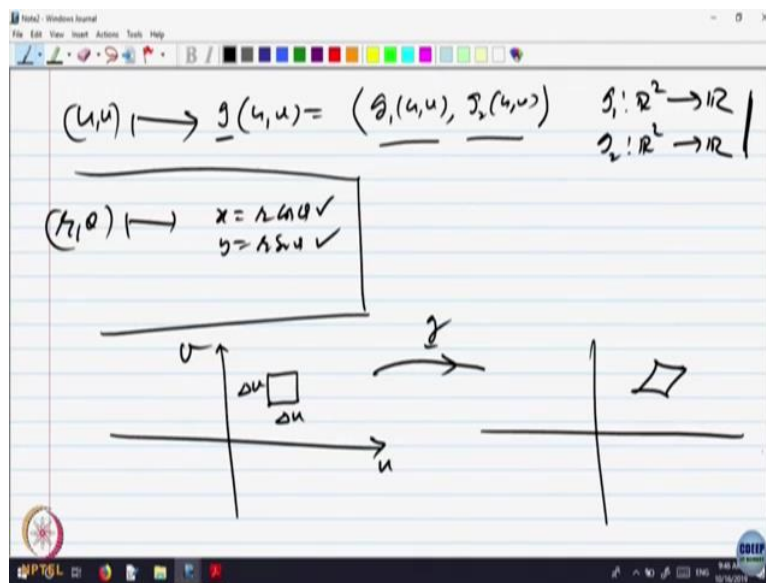 Note2 - Windows Journal
File Edit View Insert Actions Tools Help
(u,v) ⟼ g(u,v) = (g₁(u,v), g₂(u,v)) g₁: ℝ² → ℝ
g₂: ℝ² → ℝ
(r,θ) ⟼ x = r cos θ ✓
y = r sin θ ✓
g
v
Δv
Δu
u
NPTEL
CDEEP
ENG
10/16/2019